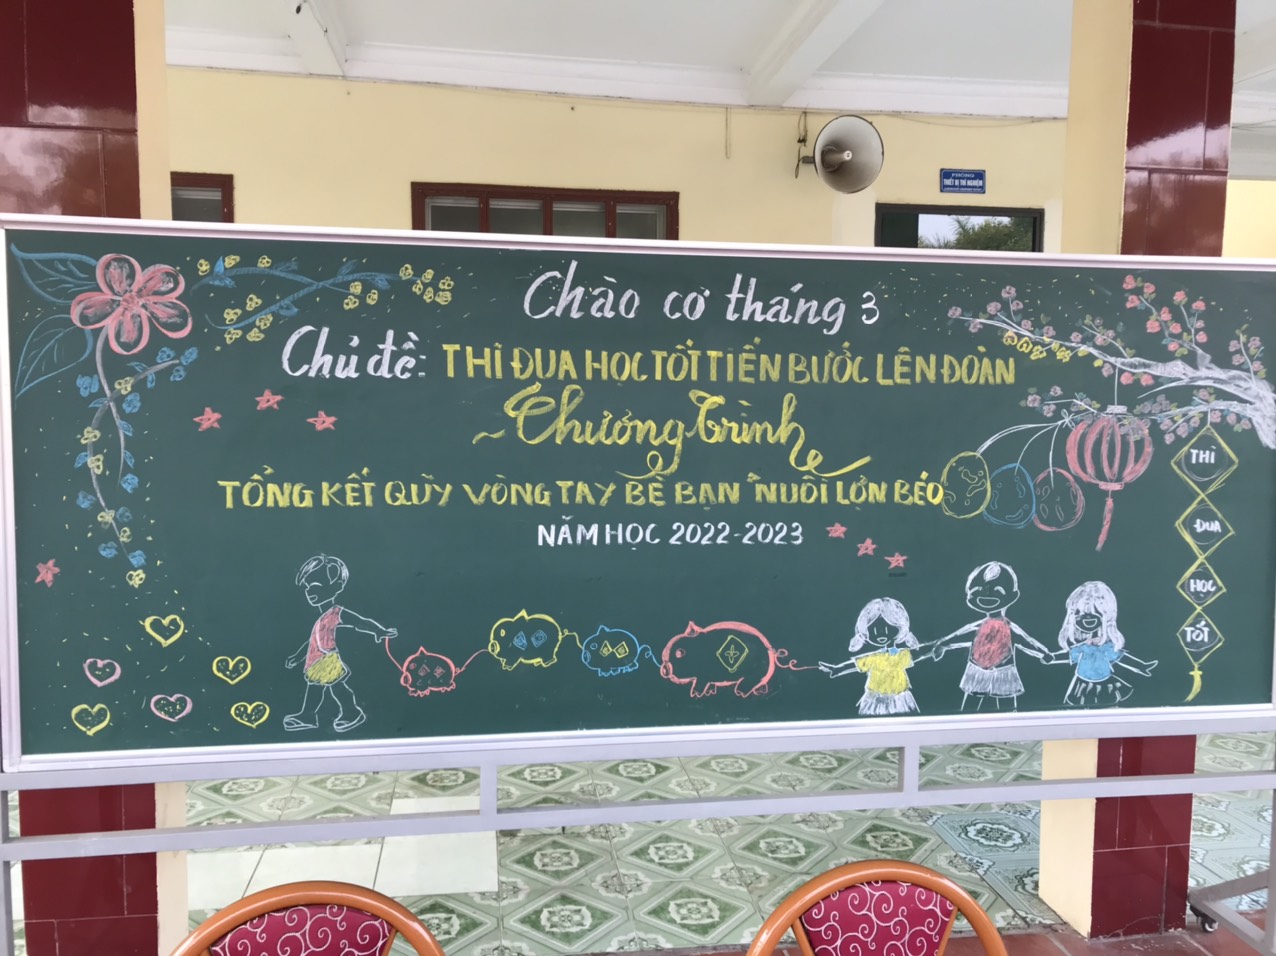 PHÒNG
THIẾT BỊ THÍ NGHIỆM
Chào cơ tháng 3
Chủ đề: THI ĐUA HỌC TỐT TIẾN BƯỚC LÊN ĐOÀN
~Chương trình~
TỔNG KẾT QUỸ VÒNG TAY BÈ BẠN "NUÔI LỢN BÉO
NĂM HỌC 2022-2023
THI
ĐUA
HỌC
TỐT